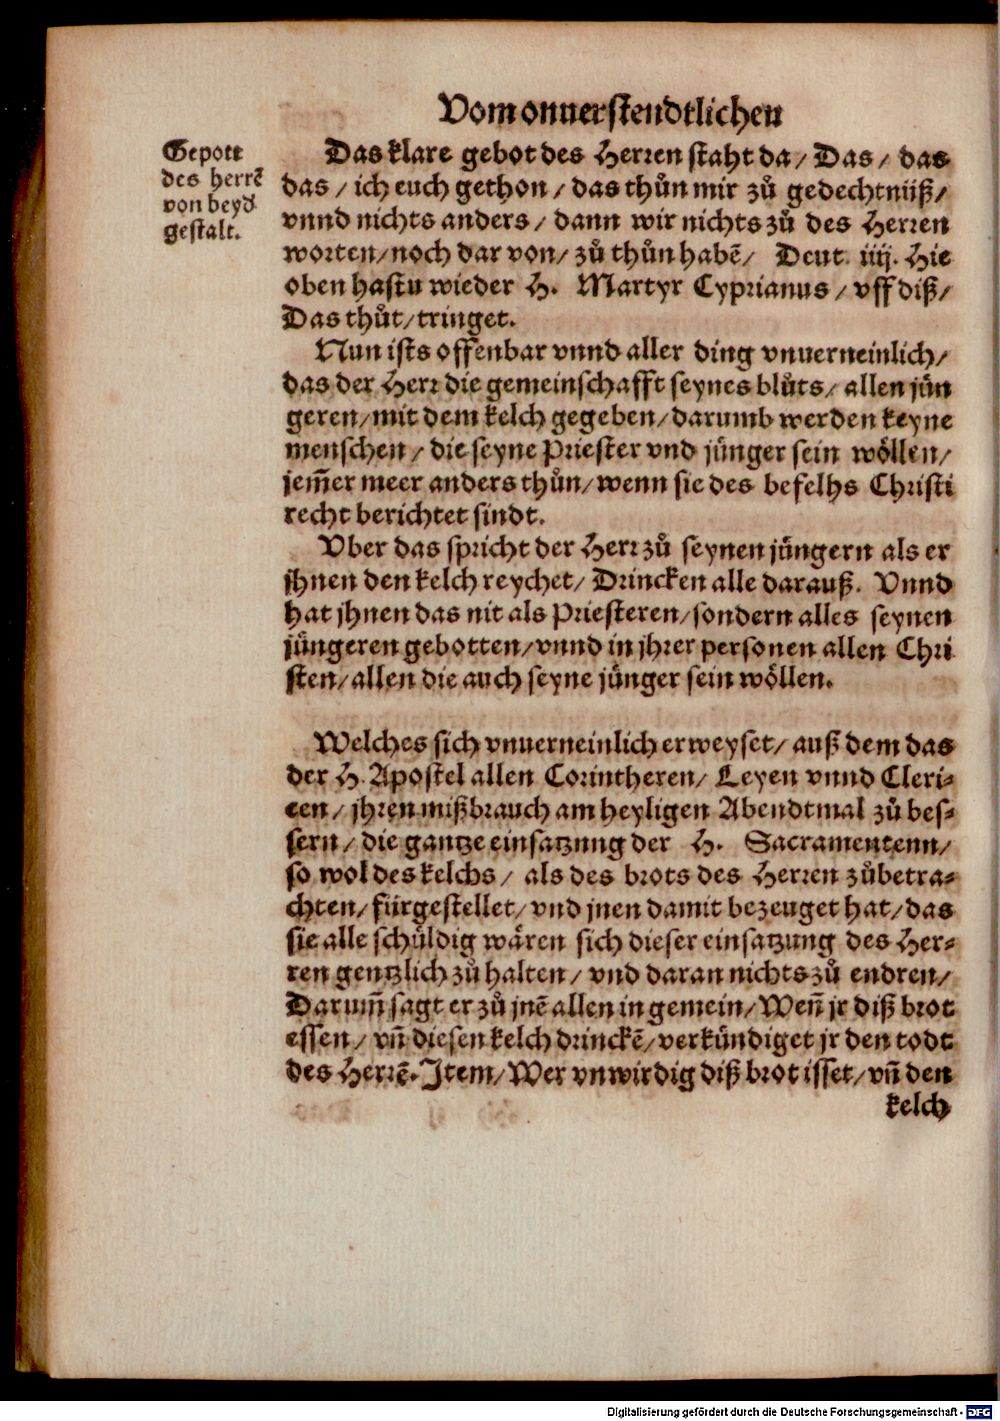 Vom onuerstendtlichen
Gepott
des herrē
von beyd
gestalt.
Das klare gebot des Herren staht da/ Das/ das
das/ ich euch gethon/ das thůn mir zů gedechtnüß/
vnnd nichts anders/ dann wir nichts zů des Herren
worten/ noch dar von/ zů thůn habē/ Deut. iiij. Hie
oben hastu wieder H. Martyr Cyprianus/ vff diß/
Das thůt/ tringet.
Nun ists offenbar vnnd aller ding vnuerneinlich/
das der Herr die gemeinschafft seynes blůts/ allen jün
geren/ mit dem kelch gegeben/ darumb werden keyne
menschen/ die seyne Priester vnd jünger sein wöllen/
jem̄er meer anders thůn/ wenn sie des befelhs Christi
recht berichtet sindt.
Vber das spricht der Herr zů seynen jüngern als er
jhnen den kelch reychet/ Drincken alle darauß. Vnnd
hat jhnen das nit als Priesteren/ sondern alles seynen
jüngeren gebotten/ vnnd in jhrer personen allen Chri
sten/ allen die auch seyne jünger sein wöllen.
Welches sich vnuerneinlich erweyset/ auß dem das
der H. Apostel allen Corintheren/ Leyen vnnd Cleri-
cen/ jhren mißbrauch am heyligen Abendtmal zů bes-
sern/ die gantze einsatzung der H. Sacramentenn/
so wol des kelchs/ als des brots des Herren zůbetra-
chten/ fürgestellet/ vnd jnen damit bezeuget hat/ das
sie alle schüldig wären sich dieser einsatzung des Her-
ren gentzlich zů halten/ vnd daran nichts zů endren/
Darum̄ sagt er zů jnē allen in gemein/ Wen̄ jr diß brot
essen/ vn̄ diesen kelch drinckē/ verkündiget jr den todt
des Herrē. Item/ Wer vnwirdig diß brot isset/ vn̄ den
kelch
Digitalisierung gefördert durch die Deutsche Forschungsgemeinschaft - DFG